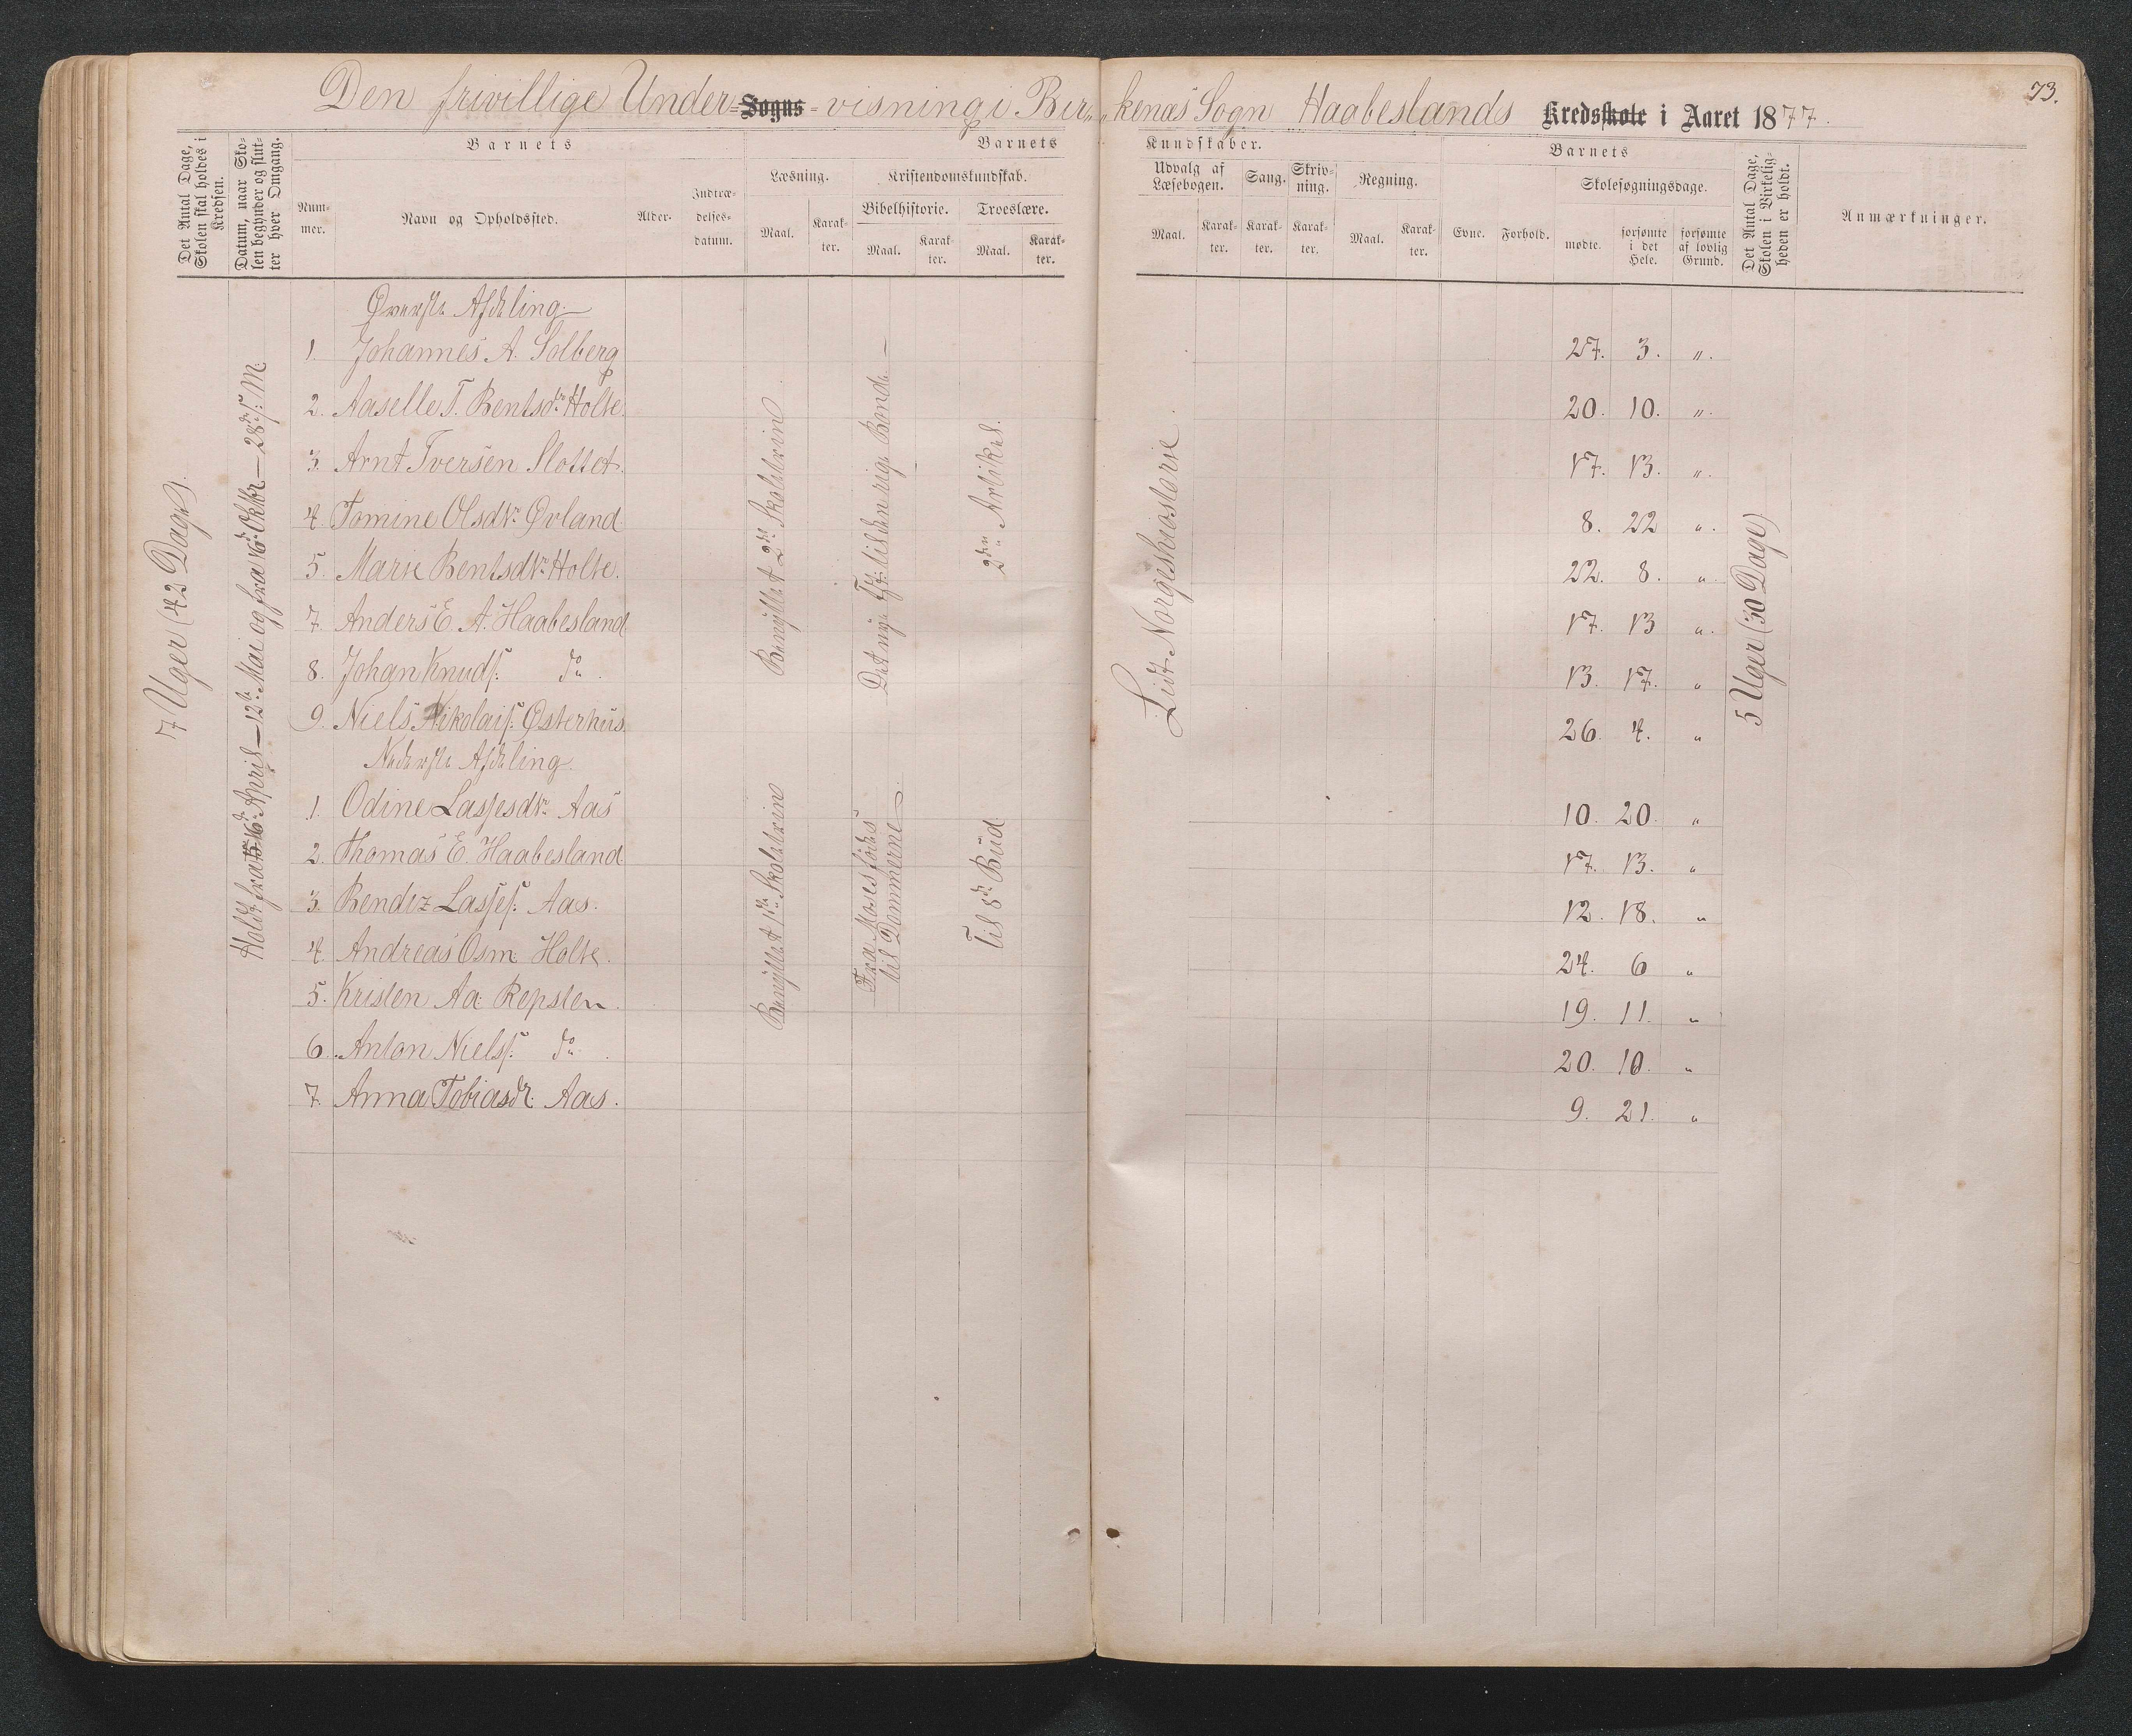 73.
Den frivillige Under= Sogns =visning i Bir„ „kenæs Sogn Haabeslands Kredsskole i Aaret 1877.
Det Antal Dage, Skolen skal holdes i Kredsen.
Datum, naar Skolen begynder og slutter hver Omgang.
Barnets
Nummer.
Navn og Opholdssted.
Alder.
Indtrædelsesdatum.
Barnets
Læsning.
Maal.
Karakter.
Kristendomskundskab.
Bibelhistorie.
Maal.
Karakter.
Troeslære.
Maal.
Karakter.
Kundskaber.
Udvalg af Læsebogen.
Maal.
Karakter.
Sang.
Karakter.
Skrivning.
Karakter.
Regning.
Maal.
Karakter.
Barnets
Evne.
Forhold.
Skolesøgningsdage.
mødte.
forsømte i det Hele.
forsømte af lovlig Grund.
Det Antal Dage, Skolen i Virkeligheden er holdt.
Anmærkninger.
7 Uger (42 Dage).
Holdt fra 16de April – 12te Mai og fra 16de Oktbr – 28de s: M.
Øverste Afdeling.
1. Johannes A. Solberg 27. 3. „.
2. Aaselle T. Bentsdtr Holte. 20. 10. „.
3. Arnt Iversen Slottet. 17. 13. „.
4. Tomine Olsdtr Øvland 8. 22 „.
5. Marie Bentsdtr Holte. 22. 8. „.
7. Anders E. A. Haabesland 17. 13 „.
8. Johan Knuds: do. 13. 17. „
9. Niels Nikolais: Østerhus. 26. 4. „
Benyttet 2det Skoletrin
Det nye T: til den rige Bonde
2den Artikel.
Lidt Norgeshistorie
5 Uger (30 Dage)
Nederste Afdeling.
1. Odine Lassesdtr Aas 10. 20. „
2. Thomas E. Haabesland 17. 13. „
3. Bendiz Lasses: Aas. 12. 18. „
4. Andreas Osm. Holte. 24. 6 „
5. Kristen Aa: Repsten. 19. 11. „
6. Anton Niels: do. 20. 10. „
7. Anna Tobiasdr: Aas. 9. 21. „
Benyttet 1ste Skoletrin
Fra Moses fødes
til Dommerne
Til 5te Bud